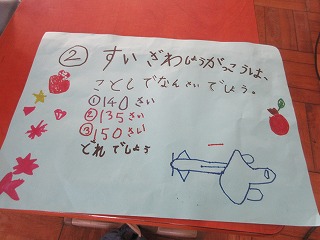 ② すいざわしょうがっこうは、
ことしでなんさいでしょう。
①140さい
②135さい
③150さい
どれでしょう